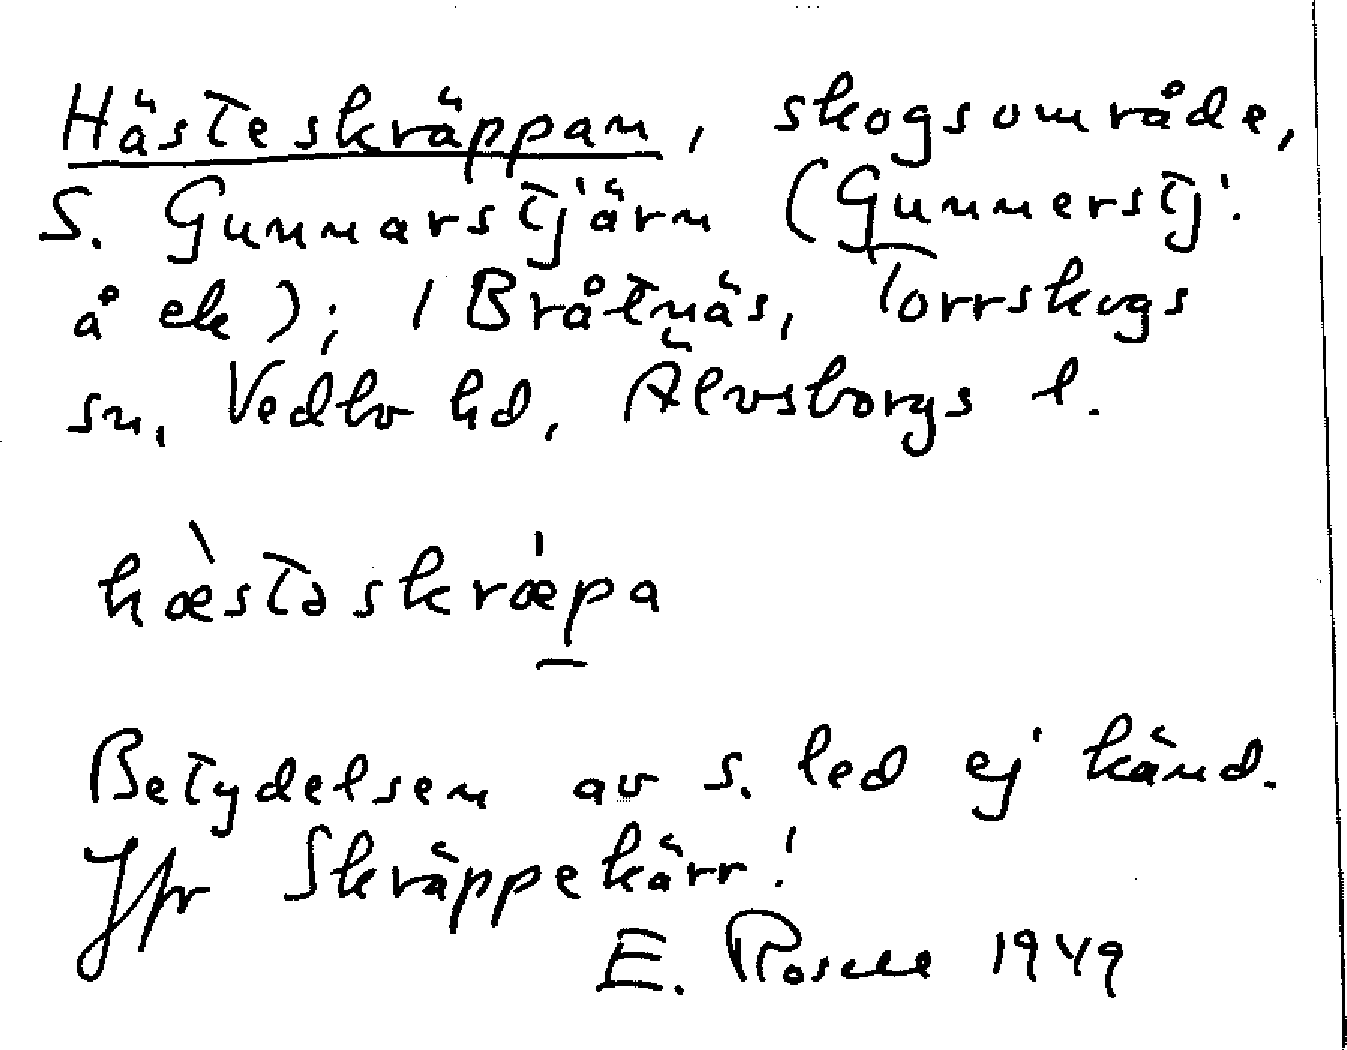 Hästeskräppan, skogsområde,
S. Gunnarstjärn (Gunnerstj.
å ek); / Bråtnäs, Torrskogs
sn, Vedbo hd, Älvsborgs l.
hæ̀stəskræ̍p̲a
Betydelsen av s. led ej känd.
Jfr Skräppekärr!
E. Rosell 1949